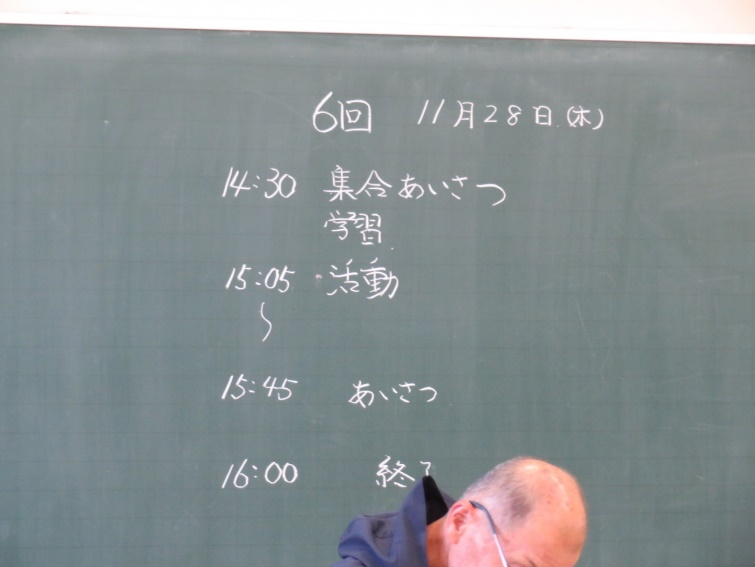 6回 11月28日(木)
14:30 集合あいさつ
学習
15:05 ・活動
〜
15:45 あいさつ
16:00 終了